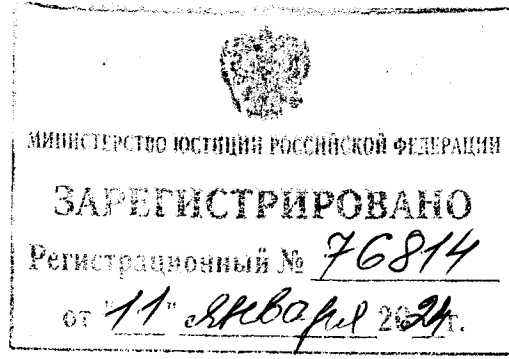 МИНИСТЕРСТВО ЮСТИЦИИ РОССИЙСКОЙ ФЕДЕРАЦИИ
ЗАРЕГИСТРИРОВАНО
Регистрационный № 76814
от "11" января 2024г.